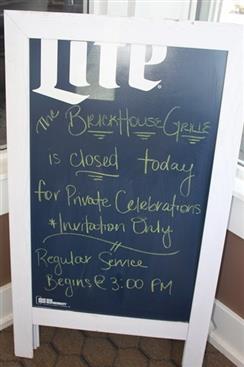 Lite
The BrickHouse Grille
is closed today
for Private Celebrations
*Invitation Only
Regular Service
Begins @ 3:00 PM